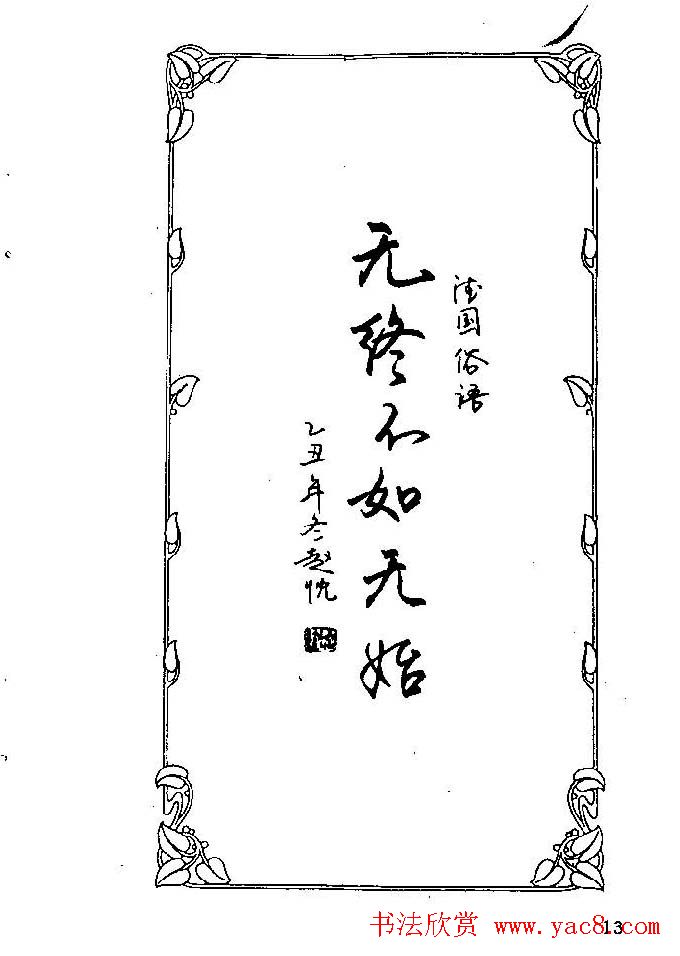 德国俗语
无终不如无始
乙丑年冬赵忱
书法欣赏 www.yac8.com
13